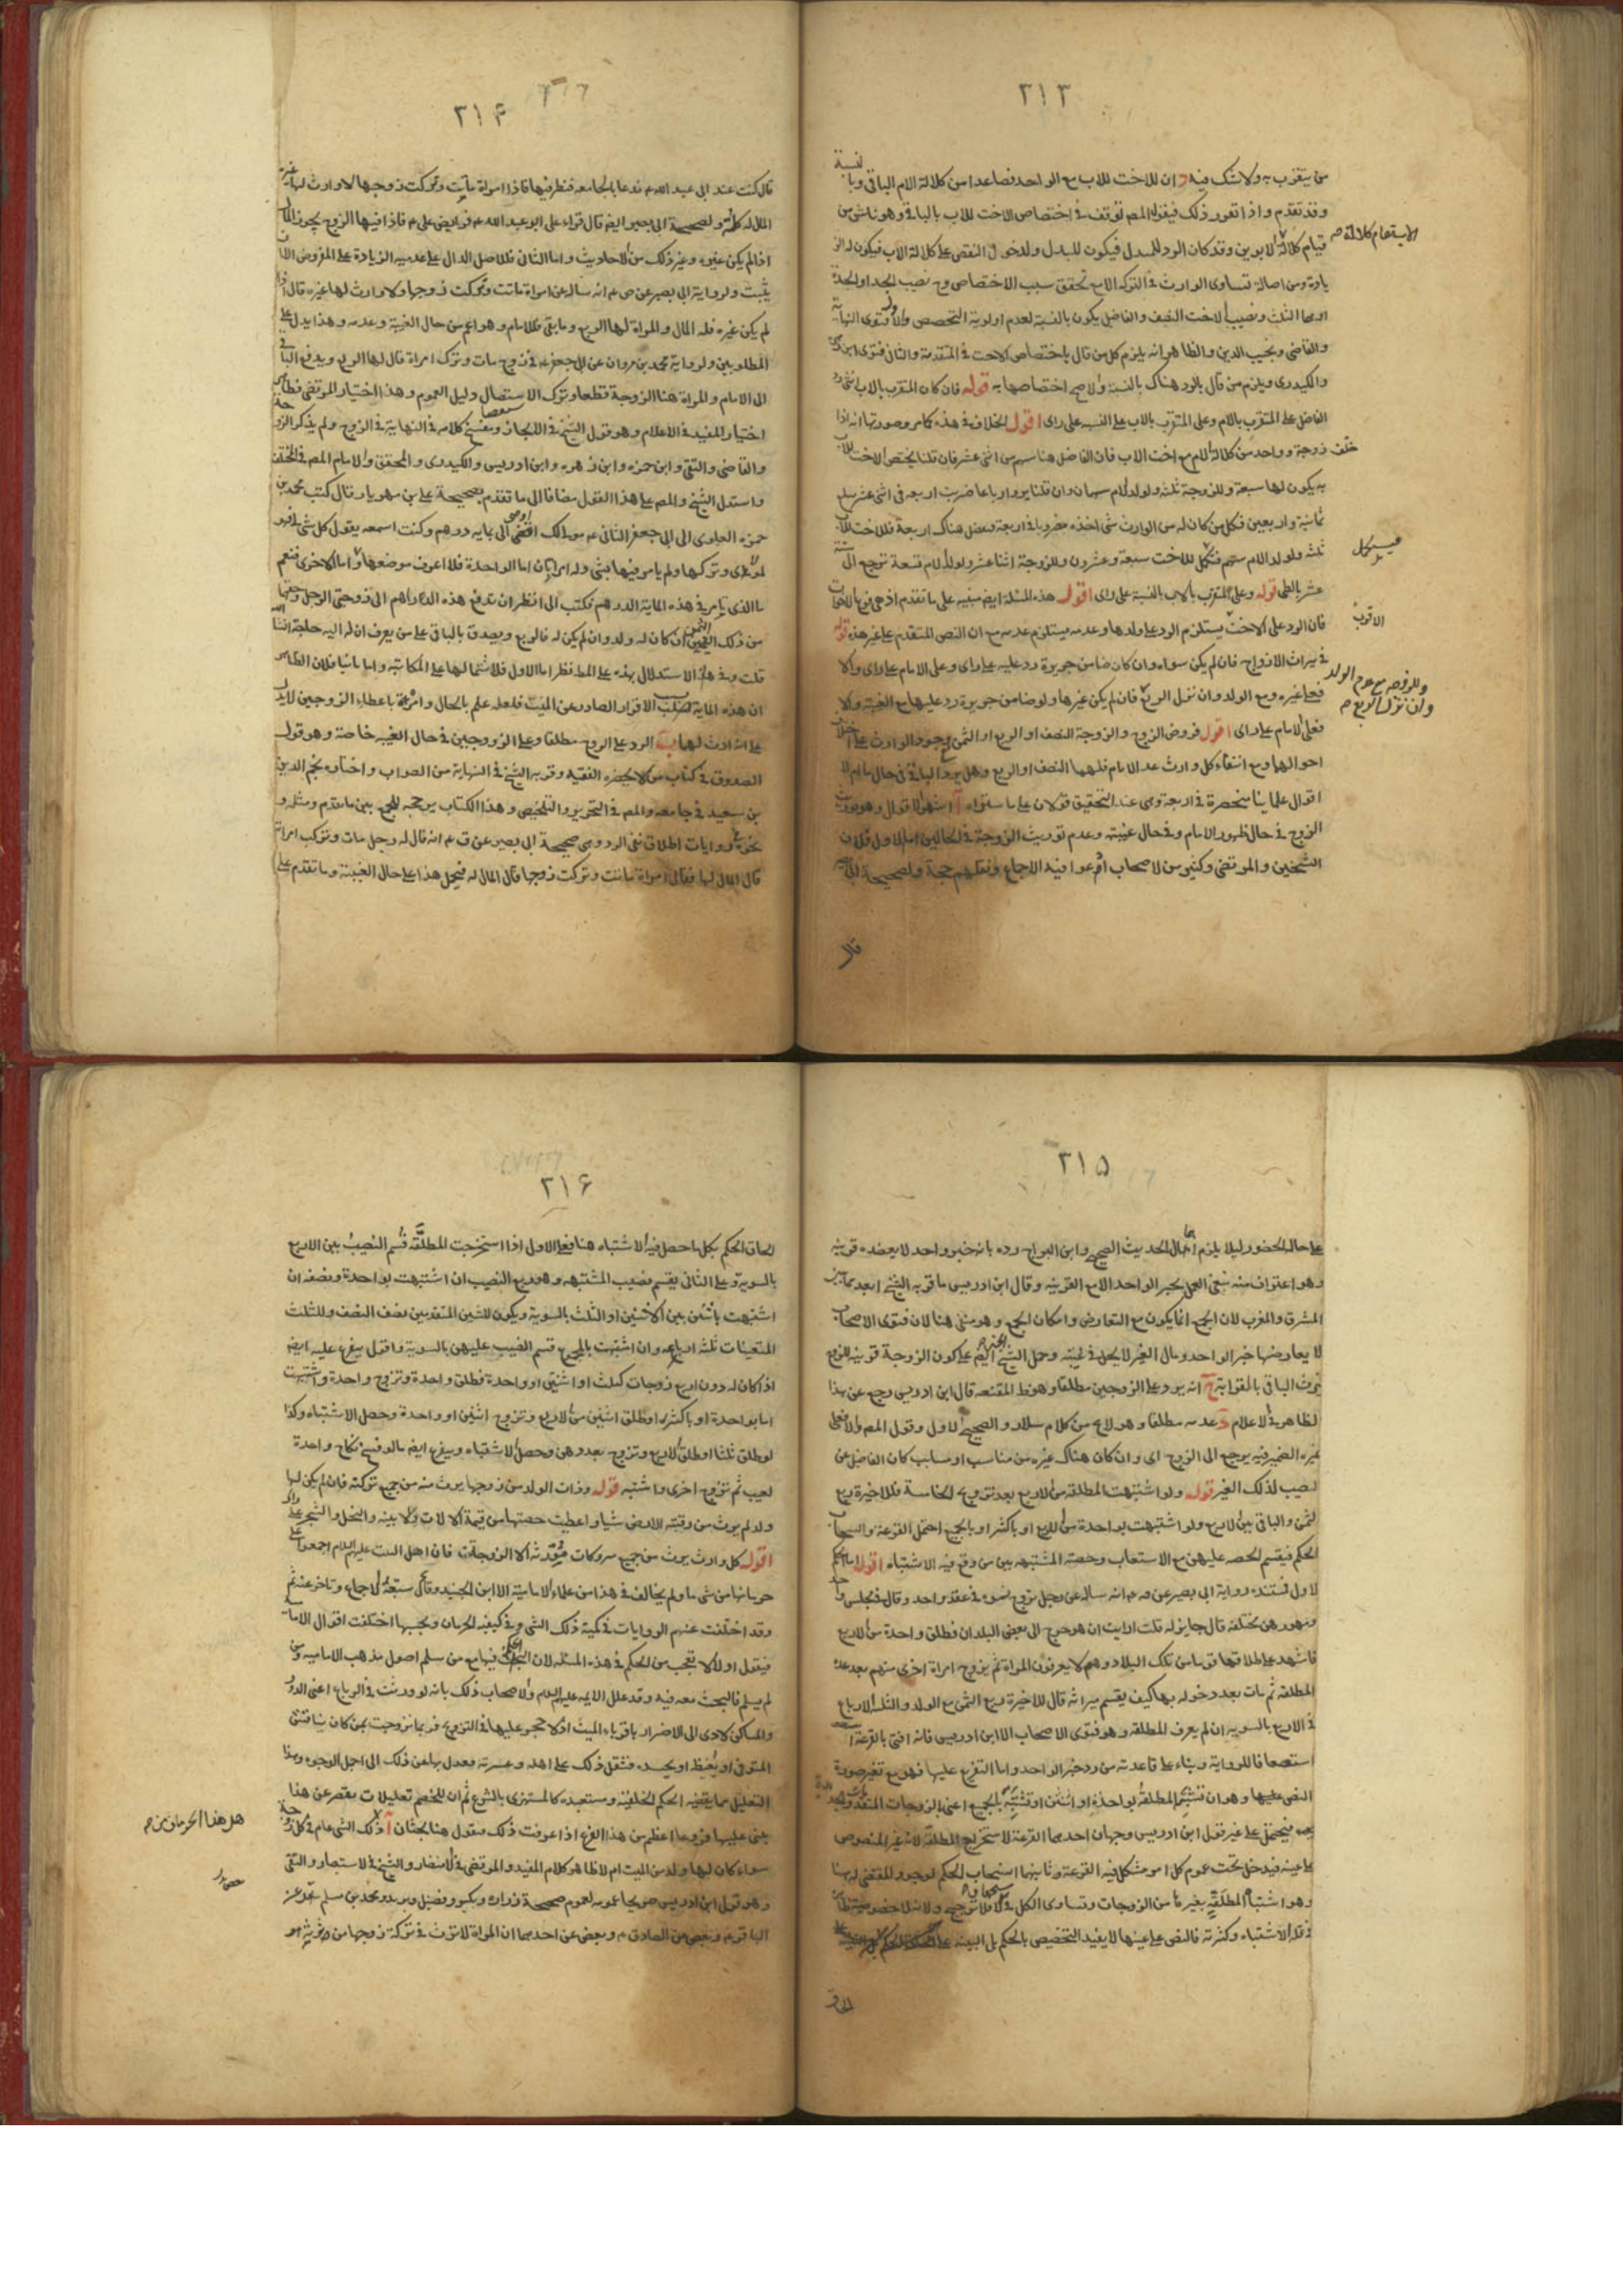 ٢١٣
من يتقرب به ولا شك فيه وان للاخت للاب مع الواحد فصاعدا من كلالة الام الباقي وبا نسبة
وقد تقدم واذا تقرر ذلك فيقول المصـ توقف في اختصاص الاخت للاب بالباقي وهو ناش من
قيام كلالة الابوين وقد كان الرد للمبدل فيكون للبدل ولدخول النقص على كلالة الاب فيكون له الز
يادة ومن اصالة تساوى الوارث في التركة الا مع تحقق سبب الاختصاص وح نصيب الجد او الجدة
او هما الثلث ونصيب الاخت النصف والفاضل يكون بالنسبة لعدم اولوية التخصص والاول فتوى النهاية
والقاضى ونجيب الدين والظاهر انه يلزم كل من قال باختصاص الاخت في المتقدمة والثانى فتوى ابن
والكيدرى ويلزم من قال بالرد هناك بالنسبة والاصح اختصاصها به قوله فان كان المتقرب بالاب
الفاضل على المتقرب بالام وعلى المتقرب بالاب على النسبه على راى اقول الخلاف في هذه كما مر وصورتها انه اذا
خلف زوجة وواحد من كلالة الام مع اخت الاب فان الفاضل هنا سهم من اثنى عشر فان قلنا يختص الاخت للاب
به يكون لها سبعة وللزوجة ثلثه ولولد الام سهمان وان قلنا يرد ارباعا ضربت اربعه في اثنى عشر يبلغ
ثمانية واربعين فكل من كان له من الوارث شى اخذه مضروبا في اربعة وفضل هناك اربعة فللاخت للاب
ثلثه ولولد الام سهم فيكمل للاخت سبعة وعشرون وللزوجة اثنا عشر ولولد الام تسعة ترجع الى ستة
عشر بالطى قوله وعلى المتقرب بالاب بالنسبة على راى اقول هذه المسئلة ايضا مبنيه على ما تقدم اذ هى فرعها
فان الرد على الاخت يستلزم الرد على ولدها وعدمه يستلزم عدمه مع ان النص المتقدم على غير هذه قوله
في ميراث الازواج فان لم يكن سواه وان كان ضامن جريرة رد عليه على راى وعلى الامام على راى والا
فعلى غيره ومع الولد وان نزل الربع فان لم يكن غيرها ولو ضامن جريرة رد عليها مع الغيبة والا
فعلى الامام على راى اقول فروض الزوج والزوجة النصف او الربع او الثمن بوجود الوارث على اختلاف
احوالهما ومع انتفاء كل وارث عدا الامام فلهما النصف او الربع وهل يرد الباقى في حال ما ام لا
اقوال علماينا منحصرة في اربعة وهى عند التحقيق قولان على ما ستراه آ اشهر الاقوال وهو توريث
الزوج في حال ظهور الامام وفي حال غيبته وعدم توريث الزوجة في الحالين اما الاول فلان
الشيخين والمرتضى وكثير من الاصحاب ادعوا فيه الاجماع ونقلهم حجة ولصحيحة ابى بصير
قال
الاستفهام كلالة صح
فيكمل
الاقرب
وللزوجه مع عدم الولد
وان نزل الربع صح
٢١۴
قال كنت عند ابى عبد الله ع فدعا بالجامعه فنظر فيها فاذا امراة ماتت وتركت زوجها لا وارث لها غيره
المال له كله ولصحيحة ابى بصير ايضا قال قراء على ابو عبد الله ع فرايض على ع فاذا فيها الزوج يحوز المال
اذا لم يكن غيره وغير ذلك من الاحاديث واما الثانى فللاصل الدال على عدميه الزيادة على المفروض الا ان
يثبت ولرواية ابى بصير عن ص ع انه ساله عن امراة ماتت وتركت زوجها ولا وارث لها غيره قال اذا
لم يكن غيره فله المال والمراة لها الربع وما بقى فللامام وهو اعم من حال الغيبة وعدمه وهذا يدل على
المطلوبين ولرواية محمد بن مروان عن ابى جعفر ع في زوج مات وترك امراة قال لها الربع ويدفع الباقى
الى الامام والمراة هنا الزوجة قطعا وترك الاستفصال دليل العموم وهذا اختيار المرتضى
اختيار المفيد في الاعلام وهو قول الشيخ في الايجاز وبعض كلامه في النهاية في الزوج ولم يذكر الزوجة
والقاضى والتقى وابن حمزه وابن زهره وابن ادريس والكيدرى والمحقق والامام المصـ في المختلف
واستدل الشيخ والمصـ على هذا القول مضافا الى ما تقدم بصحيحة على بن مهزيار قال كتب محمد بن
حمزه العلوى الى ابى جعفر الثانى ع مولى لك اوصى الى بماية درهم وكنت اسمعه يقول كل شى لى فهو
لمولاى وتركها ولم يامر فيها بشى وله امراتان اما الواحدة فلا اعرف موضعها واما الاخرى فبقم
ما الذى تامر في هذه الماية الدرهم فكتب الى انظر ان تدفع هذه الدراهم الى زوجتى الرجل وحقهما
من ذلك الثمن ان كان له ولد وان لم يكن له فالربع وتصدق بالباقى على من يعرف ان له اليه حاجة انشا الله
قلت وفي هذا الاستدلال بهذه على المط نظر اما الاول فلاشتمالها على المكاتبة واما ثانيا فلان الظاهر
ان هذه الماية بسبب الاقرار الصادر عن الميت فلعله علم بالحال وامره باعطاء الزوجين لا يدل
على انه ارث لهما ب الرد على الزوج مطلقا وعلى الزوجين في حال الغيبه خاصة وهو قول
الصدوق في كتاب من لا يحضره الفقيه وقربه الشيخ في النهاية من الصواب واختاره نجم الدين
بن سعيد في جامعه والمصـ في التحرير والتلخيص وهذا الكتاب يرجحه للجمع بين ما تقدم ومثله و
روايات اطلاق نفى الرد وهى صحيحة ابى بصير عن ق ع انه قال له رجل مات وترك امراة
قال المال لها فقال امراة ماتت وتركت زوجها قال المال له فيحمل هذا على حال الغيبة وما تقدم على
٢١۵
على حال الحضور ليلا يلزم اهمال الحديث الصحيح وابن البراج رده بانه خبر واحد لا يعضده قرينه
وهو اعتراف منه بنفى العمل بخبر الواحد الا مع القرينه وقال ابن ادريس ما قربه الشيخ ابعد مما بين
المشرق والمغرب لان الجمع انما يكون مع التعارض وامكان الجمع وهو منفى هنا لان فتوى الاصحاب
لا يعارضها خبر الواحد ومال الغير لا يحل في غيبته وحمل الشيخ ايضا على كون الزوجة قريبه للزوج
ترث الباقى بالقرابة ج انه يرد على الزوجين مطلقا وهو ظ المقنعه قال ابن ادريس رجع عن هذا
لظاهره في الاعلام د عدمه مطلقا وهو لايح من كلام سلار والصحيح الاول وقول المصـ والا فعلى
غيره الضمير فيه يرجع الى الزوج اى وان كان هناك غيره من مناسب او مسابب كان الفاضل عن
نصيب لذلك الغير قوله ولو اشتبهت المطلقة من الاربع بعد تزويج الخامسة فللاخيرة ربع
الثمن والباقى بين الاربع ولو اشتبهت بواحدة من الاربع او باكثر او بالجميع احتمل القرعة وانسحاب
الحكم فيقسم الحصه عليهن مع الاستيعاب وحصة المشتبهه بين من وقع فيه الاشتباه اقول اما الحكم
الاول فمستنده رواية ابى بصير عن ـه ع انه ساله عن رجل تزوج نسوه في عقد واحد وقال في مجلس واحد
ومهورهن مختلفه قال جايز له قلت ارايت ان هو خرج الى بعض البلدان فطلق واحدة من الاربع
فاشهد على طلاقها قوما من تلك البلاد وهم لا يعرفون المراة ثم تزوج امراة اخرى منهم بعد عدة
المطلقه ثم مات بعد دخوله بها كيف يقسم ميراثه قال للاخيرة ربع الثمن مع الولد والثلثه الارباع
في الاربع بالسويه ان لم يعرف المطلقه وهو فتوى الاصحاب الا ابن ادريس فانه افتى بالقرعة
استضعافا للرواية وبناء على قاعدته من رد خبر الواحد واما التفريع عليها فهو مع تغير صورة
النص عليها وهو ان تشتبه المطلقة بواحدة او اثنتين او تشتبه بالجميع اعنى الزوجات المتقدمات والمتجددة
فيحتمل على غير قول ابن ادريس وجهان احدهما القرعة لاستخراج المطلقة لانه غير المنصوص
على عينه فيدخل تحت عموم كل امر مشكل فيه القرعة وثانيهما انسحاب الحكم لوجود المقتضى له هنا
وهو اشتباه المطلقة بغيرها من الزوجات وتساوى الكل في الاستحقاق فلا ترجيح ولانه لا خصوصية
في قلة الاشتباه وكثرته فالنص على عينها لا يفيد التخصيص بالحكم بل البينه على
الحاق
٢١۶
الحاق الحكم بكل ما حصل فيه الاشتباه هنا فعلى الاول اذا استخرجت المطلقة قسم النصيب بين الاربع
بالسوية وعلى الثانى يقسم نصيب المشتبهه وهو ربع النصيب ان اشتبهت بواحدة ونصفه ان
اشتبهت باثنتين بين الاثنتين او الثلث بالسوية ويكون للثنتين المتقدمتين نصف النصف وللثلث
المتعينات ثلثه ارباعه وان اشتبهت بالجميع قسم النصيب عليهن بالسوية واقول يتفرع عليه ايضا
اذا كان له دون اربع زوجات كثلث او اثنتين او واحدة فطلق واحدة وتزوج واحدة واشتبهت
اما بواحدة او باكثر او طلق اثنتين من الاربع وتزوج اثنتين او واحدة وحصل الاشتباه وكذا
لو طلق ثلثا او طلق الاربع وتزوج بعددهن وحصل الاشتباه ويتفرع ايضا ما لو فسخ نكاح واحدة
لعيب ثم تزوج اخرى واشتبه قوله وذات الولد من زوجها يرث منه من جميع تركته فان لم يكن لها
ولد لم يرث من رقبة الارض شيا واعطيت حصتها من قيمة الالات والابنيه والنخل والشجر على راى
اقول كل وارث يرث من جميع متروكات مورثه الا الزوجات فان اهل البيت عليهم السلام اجمعوا على
حرمانها من شى ما ولم يخالف في هذا من علماء الامامية الا ابن الجنيد وقد سبقه الاجماع وتاخر عنه ثم
وقد اختلفت عنهم الروايات في كمية ذلك الشى وفي كيفية الحرمان وبحسبها اختلفت اقوال الاصحاب
فنقول اولا لا تتعجب من الحكم في هذه المسئلة لان البحث فيها مع من سلم اصول مذهب الامامية ومن
لم يسلم فالبحث معه فيه وقد علل الائمه عليهم السلام والاصحاب ذلك بانه لو ورثت في الرباع اعنى الدور
والمساكن لادى الى الاضرار باقرباء الميت اذ لا حجر عليها في التزويج فربما تزوجت بمن كان ينافس
المتوفى او يغبطه او يحسده فثقل ذلك على اهله وعشيرته فعدل بها عن ذلك الى اجمل الوجوه وهذا
التعليل مما يقتضيه الحكم الخلفيه ومستبعده كالمستهزى بالشرع ثم ان للخصم تعليلات يقصر عن هذا
بنى عليها فروعا اعظم من هذا الفرع اذا عرفت ذلك فنقول هنا بحثان آ ذلك الشى عام في كل زوجة
سواء كان لها ولد من الميت ام لا ظاهر كلام المفيد والمرتضى في الانتصار والشيخ في الاستبصار والتقى
وهو قول ابن ادريس صريحا عمومه لعموم صحيحة زراره وبكير وفضيل وبريد ومحمد بن مسلم عن
الباقر ع وبعض عن الصادق ع وبعض عن احدهما ان المراة لا ترث في تركة زوجها من تربة او
هل هذا الحرمان من صح